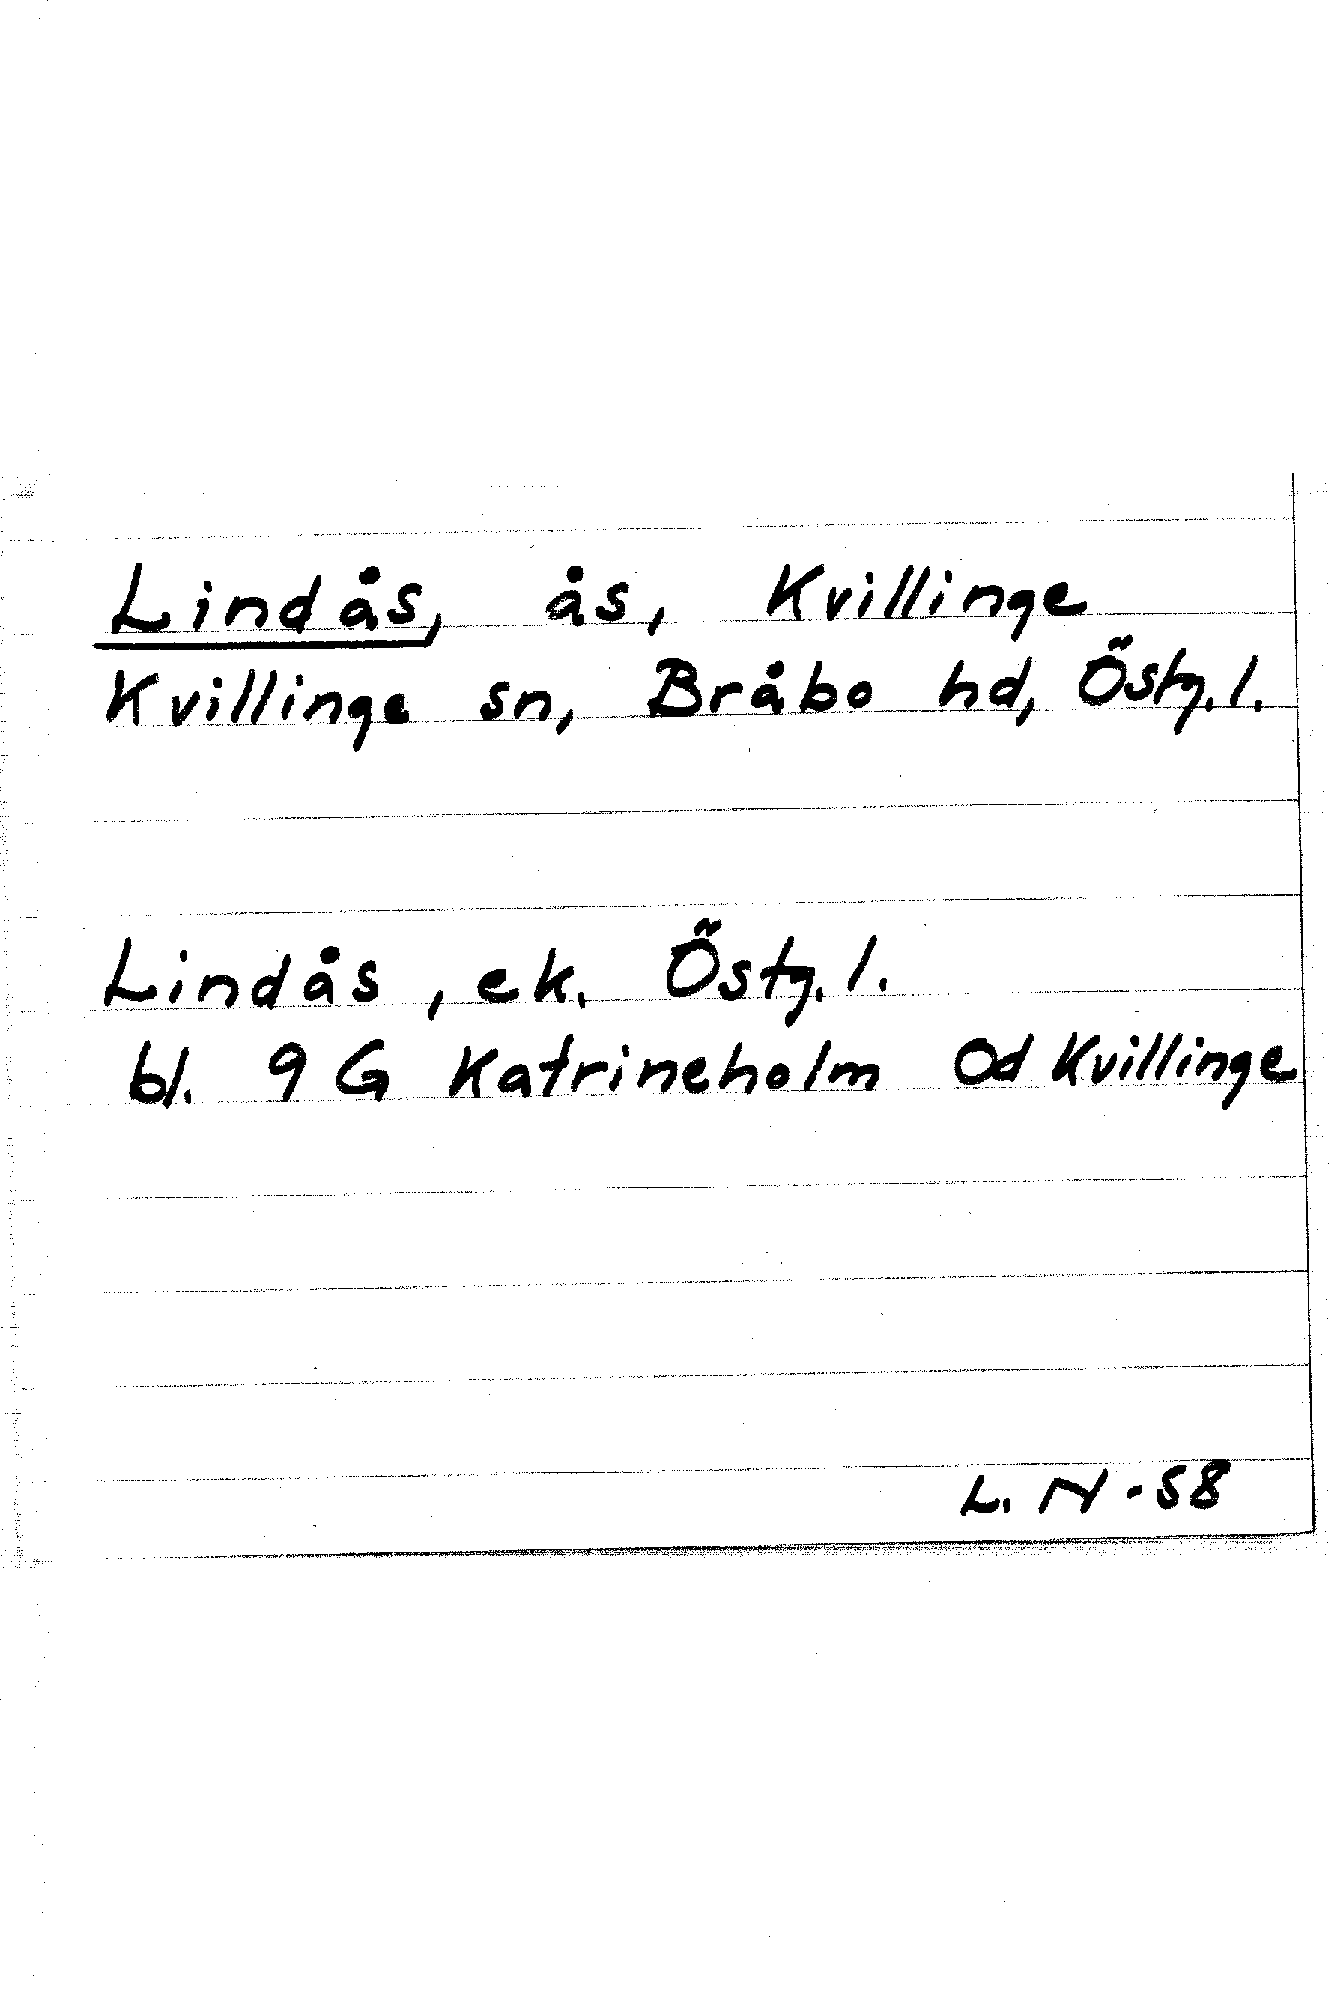 Lindås, ås, Kvillinge
Kvillinge sn, Bråbo hd, Östg. l.
Lindås, ek. Östg. l.
bl. 9 G Katrineholm Od Kvillinge
L. N - 58